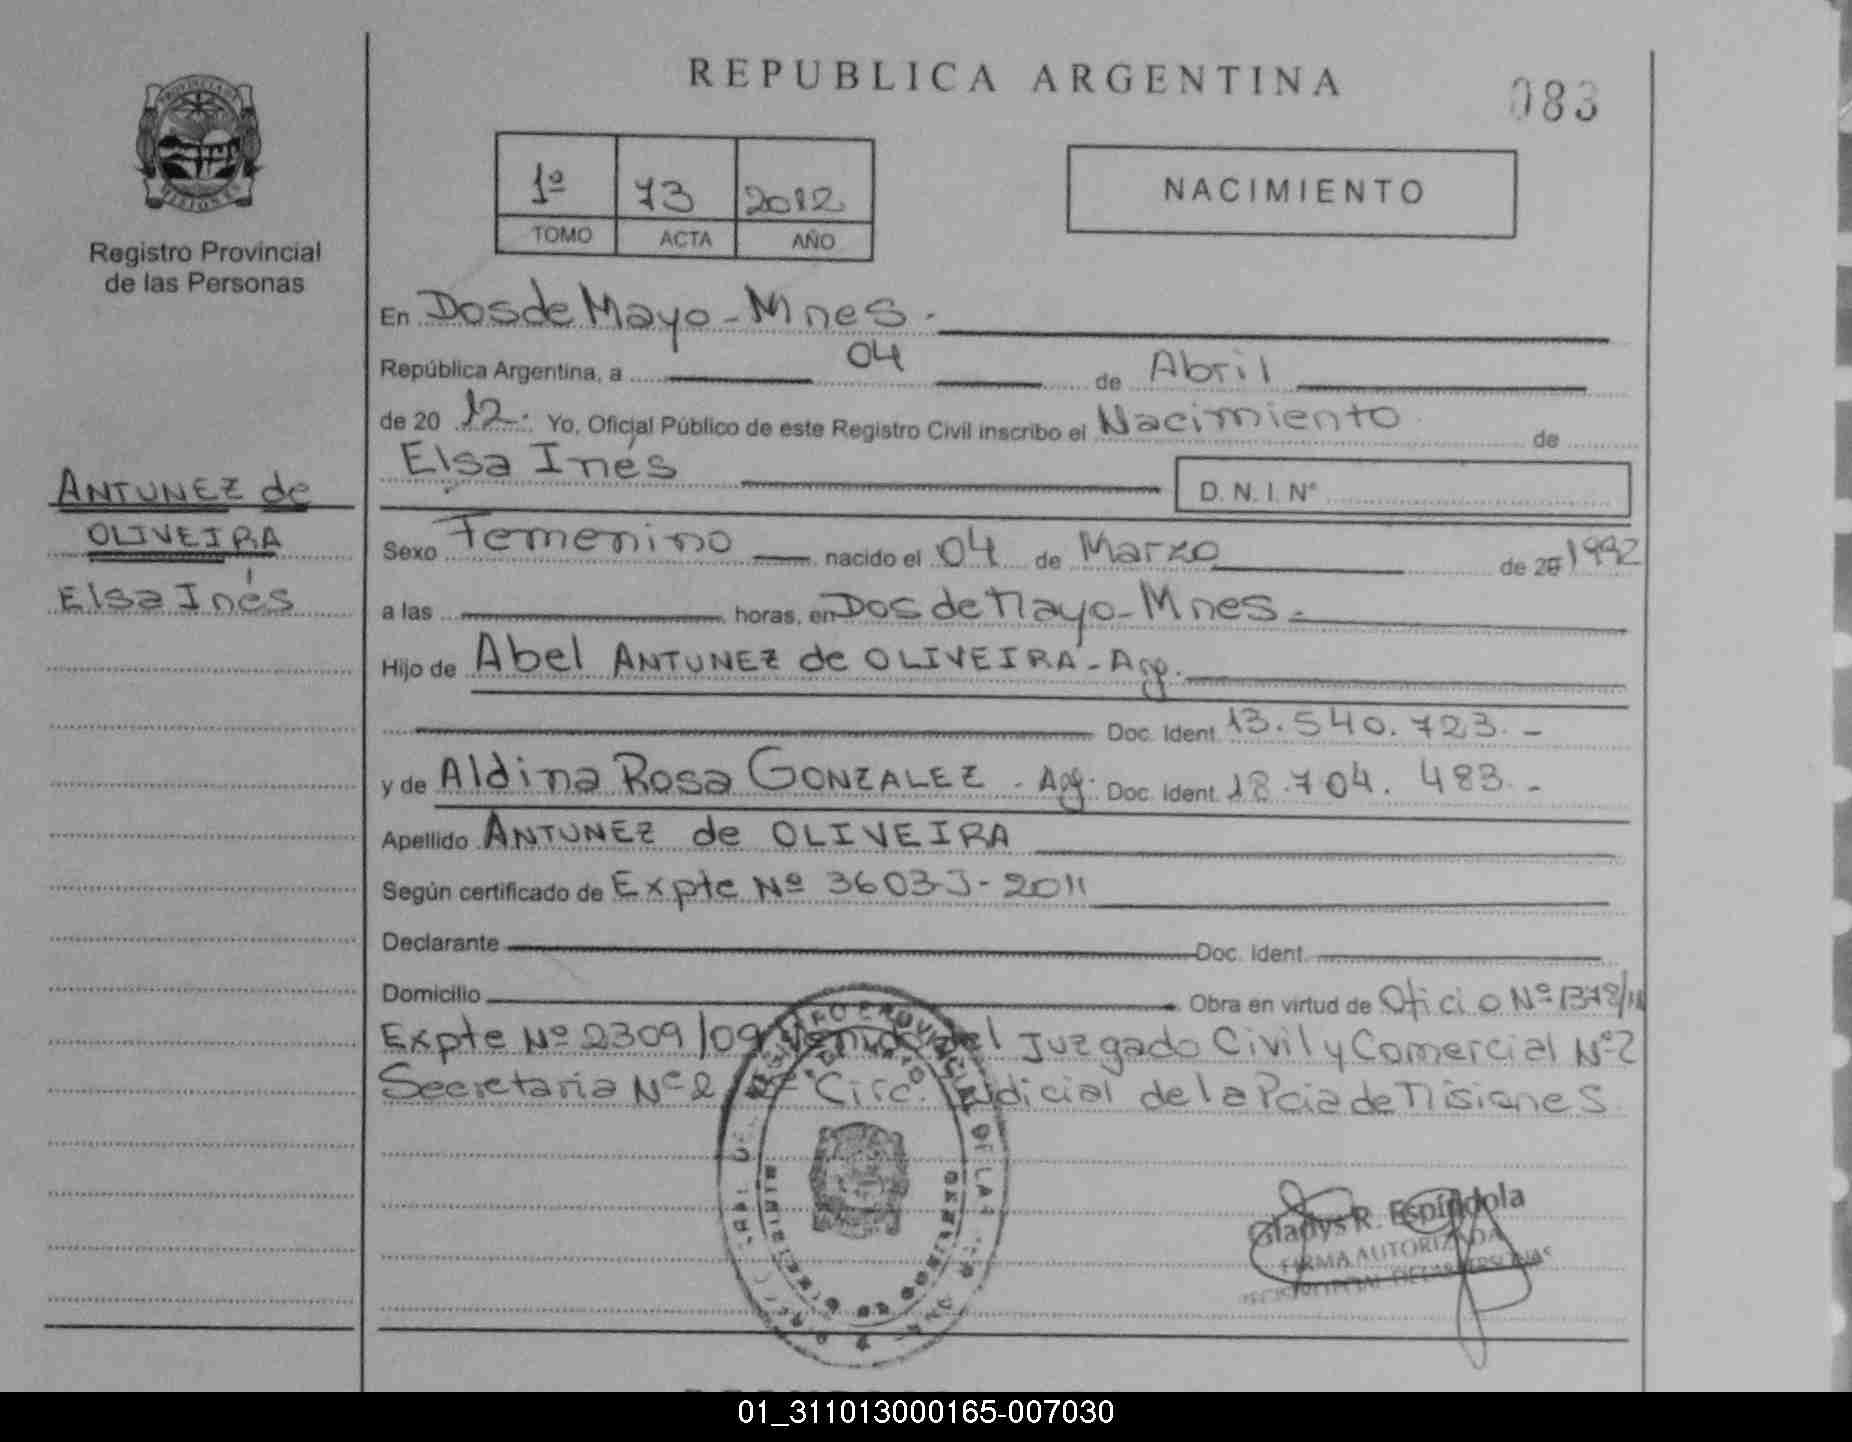 REPUBLICA ARGENTINA
083
PROVINCIA DE
MISIONES
Registro Provincial
de las Personas
1º 73 2012
TOMO ACTA AÑO
NACIMIENTO
En Dos de Mayo - Mnes.
República Argentina, a 04 de Abril
de 20 12. Yo, Oficial Público de este Registro Civil inscribo el Nacimiento de
Elsa Inés D. N. I. Nº
ANTUNEZ de
OLIVEIRA
Elsa Inés
Sexo Femenino nacido el 04 de Marzo de 20 1992
a las horas, en Dos de Mayo - Mnes.
Hijo de Abel ANTUNEZ de OLIVEIRA - Arg.
Doc. Ident. 13.540.723. -
y de Aldina Rosa GONZALEZ - Arg. Doc. Ident. 18.704.483. -
Apellido ANTUNEZ de OLIVEIRA
Según certificado de Expte Nº 3603-J-2011
Declarante Doc. Ident.
Domicilio Obra en virtud de Oficio Nº 1378/11
Expte Nº 2309/09 Venido del Juzgado Civil y Comercial Nº 2
Secretaria Nº 2 Circ. Judicial de la Pcia de Misiones
Gladys R. Espíndola
FIRMA AUTORIZADA
01_311013000165-007030